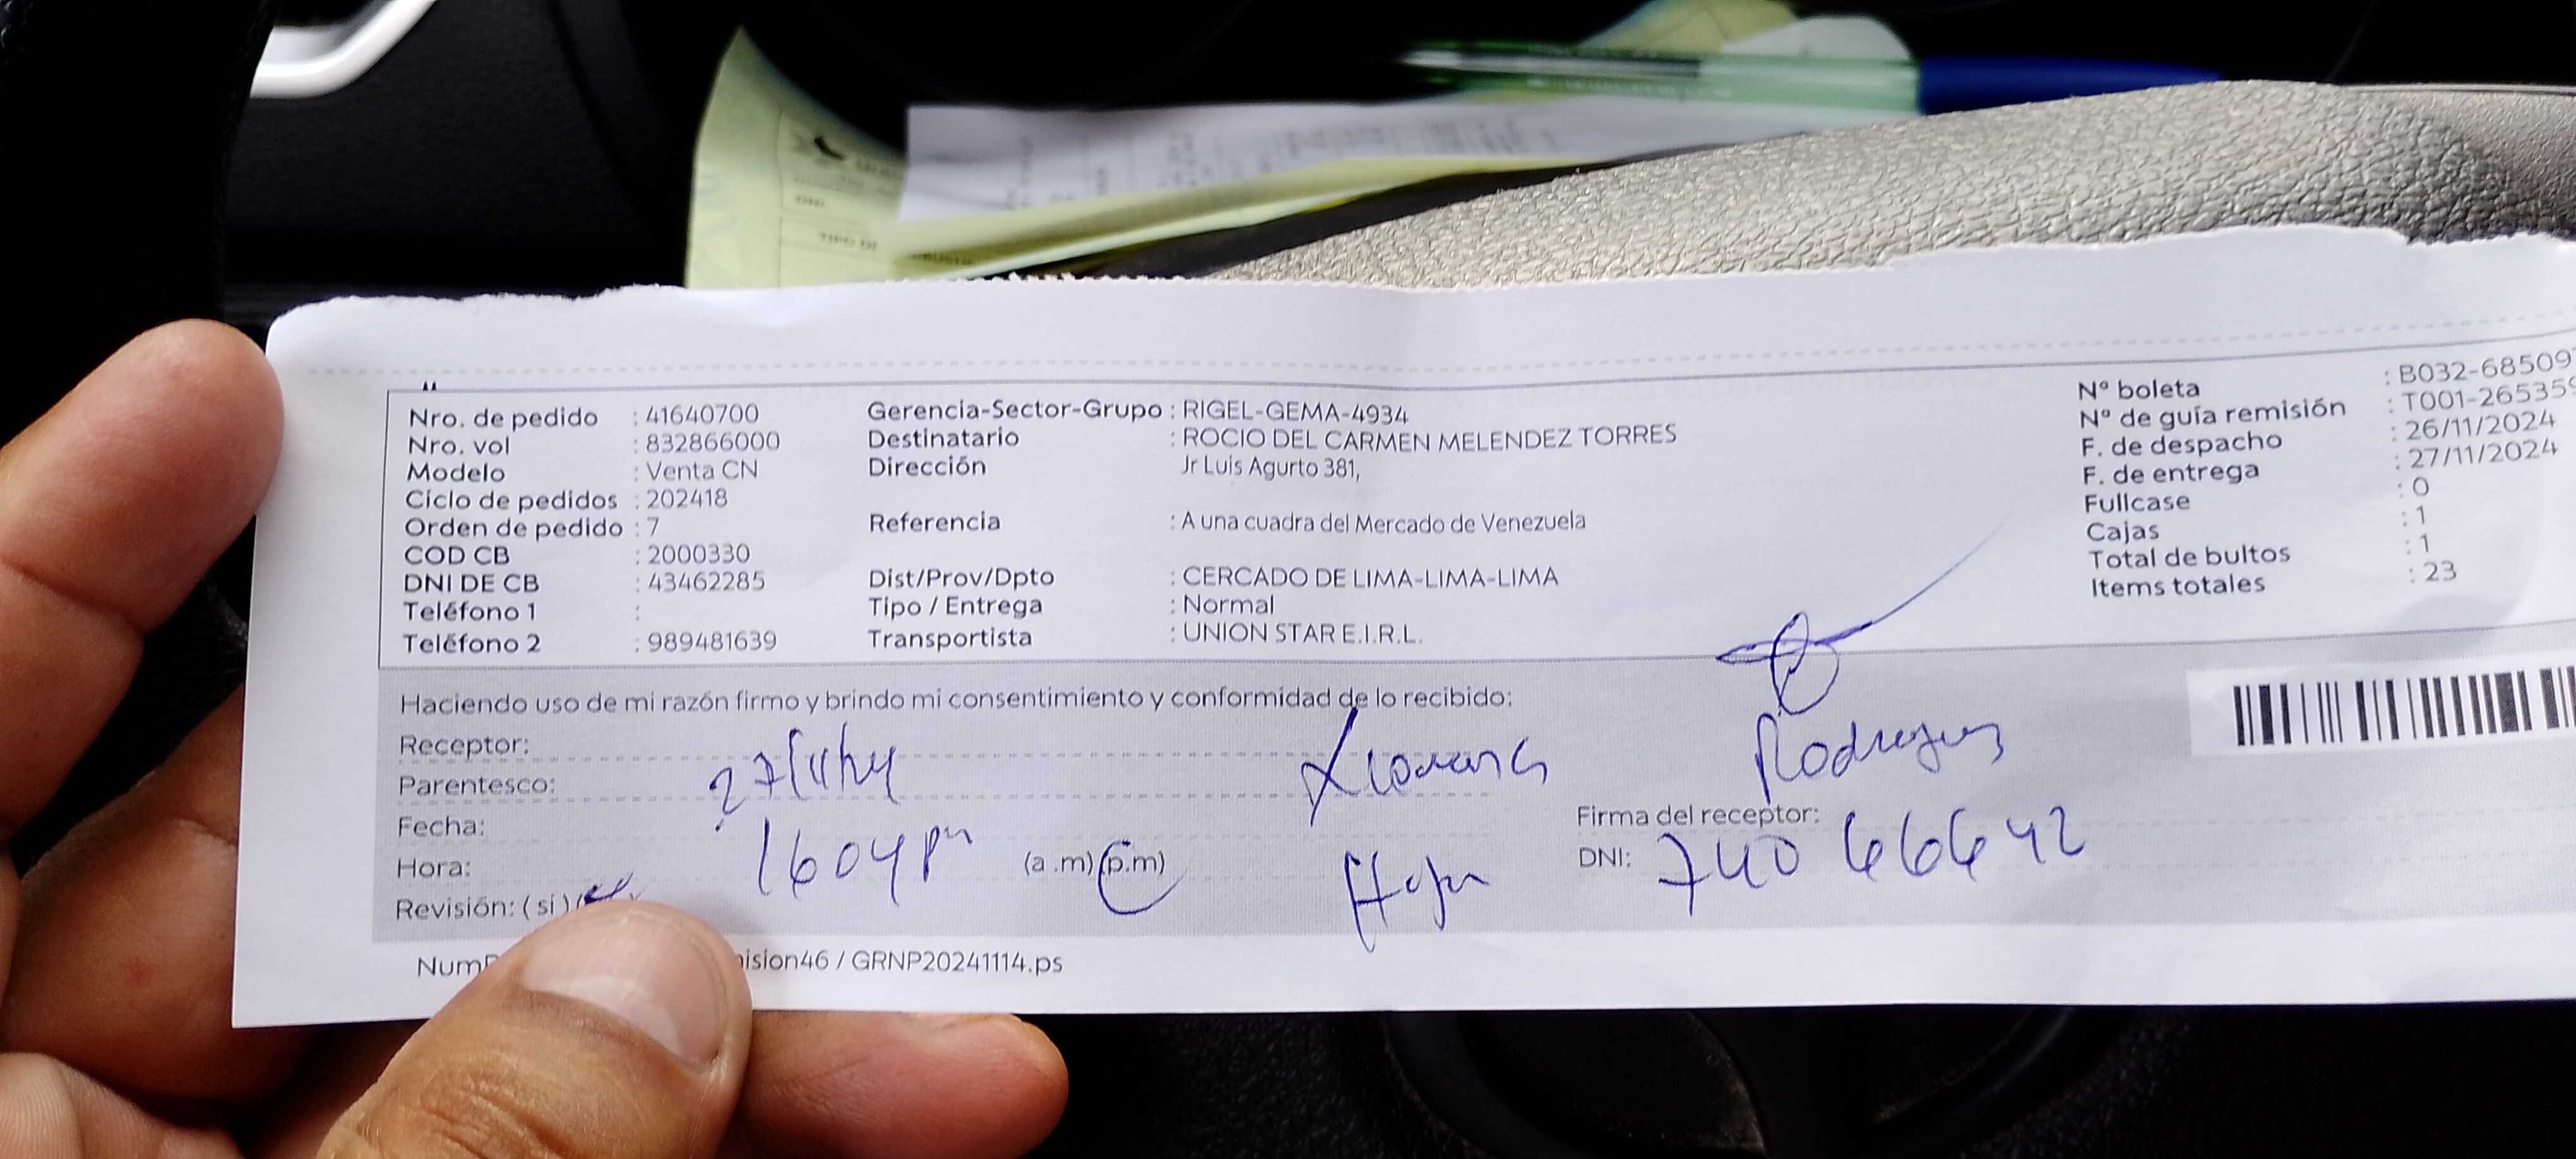 Nro. de pedido : 41640700 Gerencia-Sector-Grupo : RIGEL-GEMA-4934 Nº boleta : B032-68509
Nro. vol : 832866000 Destinatario : ROCIO DEL CARMEN MELENDEZ TORRES Nº de guía remisión : T001-265359
Modelo : Venta CN Dirección Jr Luis Agurto 381, F. de despacho : 26/11/2024
Ciclo de pedidos : 202418 F. de entrega : 27/11/2024
Orden de pedido : 7 Referencia : A una cuadra del Mercado de Venezuela Fullcase : 0
COD CB : 2000330 Cajas : 1
DNI DE CB : 43462285 Dist/Prov/Dpto : CERCADO DE LIMA-LIMA-LIMA Total de bultos : 1
Teléfono 1 : Tipo / Entrega : Normal Items totales : 23
Teléfono 2 : 989481639 Transportista : UNION STAR E.I.R.L.
Haciendo uso de mi razón firmo y brindo mi consentimiento y conformidad de lo recibido:
Receptor:
Parentesco: 27/11/24 Rodriguez
Fecha: Firma del receptor:
Hora: 1604 pm (a .m) (p.m) DNI: 74066642
Revisión: ( si ) (
ision46 / GRNP20241114.ps